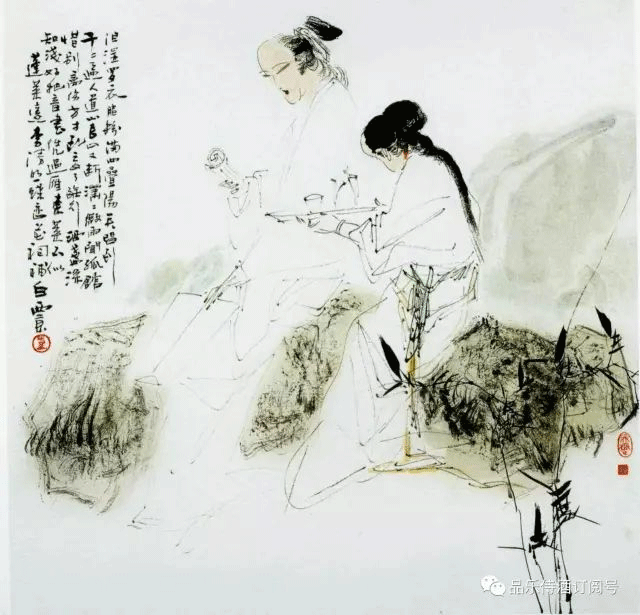 泪湿罗衣脂粉满四叠阳关唱到
千千遍人道山长山又断潇潇微雨闻孤馆
惜别伤离方寸乱忘了临行酒盏深
和浅好把音書凭过雁東莱不似
蓬莱遠李清照蝶恋花词補白西京
品乐侍酒订阅号